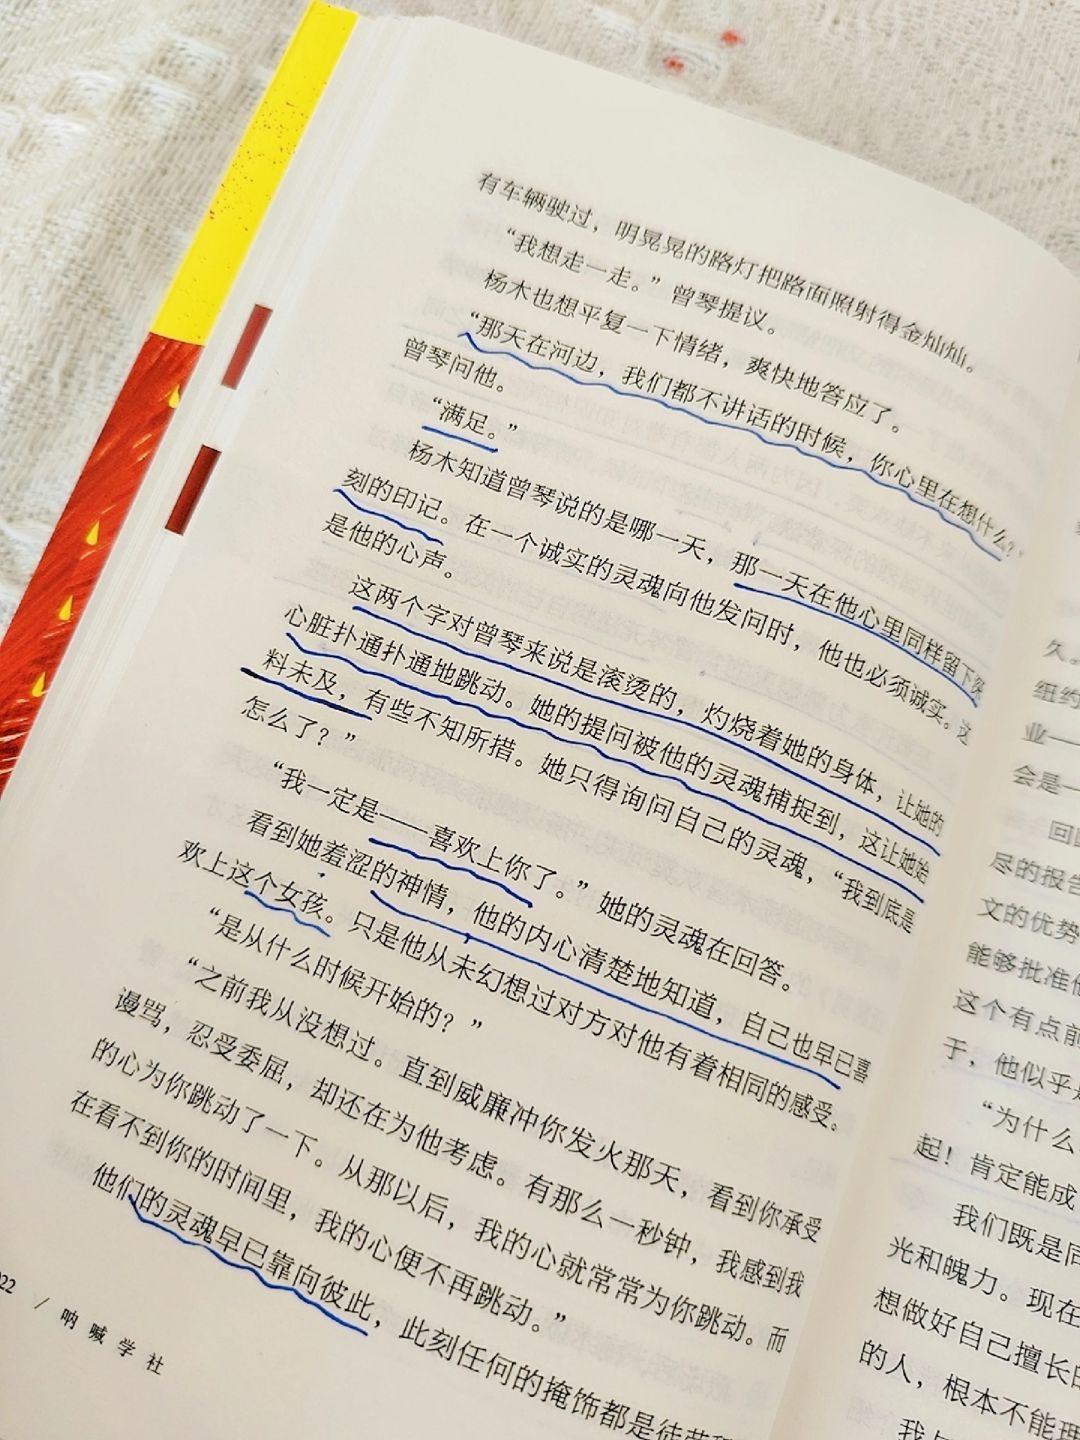 有车辆驶过，明晃晃的路灯把路面照射得金灿灿。
“我想走一走。”曾琴提议。
杨木也想平复一下情绪，爽快地答应了。
“那天在河边，我们都不讲话的时候，你心里在想什么？”
曾琴问他。
“满足。”
杨木知道曾琴说的是哪一天，那一天在他心里同样留下深
刻的印记。在一个诚实的灵魂向他发问时，他也必须诚实。这
是他的心声。
这两个字对曾琴来说是滚烫的，灼烧着她的身体，让她的
心脏扑通扑通地跳动。她的提问被他的灵魂捕捉到，这让她始
料未及，有些不知所措。她只得询问自己的灵魂，“我到底是
怎么了？”
“我一定是——喜欢上你了。”她的灵魂在回答。
看到她羞涩的神情，他的内心清楚地知道，自己也早已喜
欢上这个女孩。只是他从未幻想过对方对他有着相同的感受。
“是从什么时候开始的？”
“之前我从没想过。直到威廉冲你发火那天，看到你承受
谩骂，忍受委屈，却还在为他考虑。有那么一秒钟，我感到我
的心为你跳动了一下。从那以后，我的心就常常为你跳动。而
在看不到你的时间里，我的心便不再跳动。”
他们的灵魂早已靠向彼此，此刻任何的掩饰都是徒劳
022 / 呐喊学社
久。
纽约
业——
会是一
回
尽的报告
文的优势
能够批准他
这个有点前
于，他似乎是
“为什么
起！肯定能成
我们既是同
光和魄力。现在
想做好自己擅长的
的人，根本不能理
我与